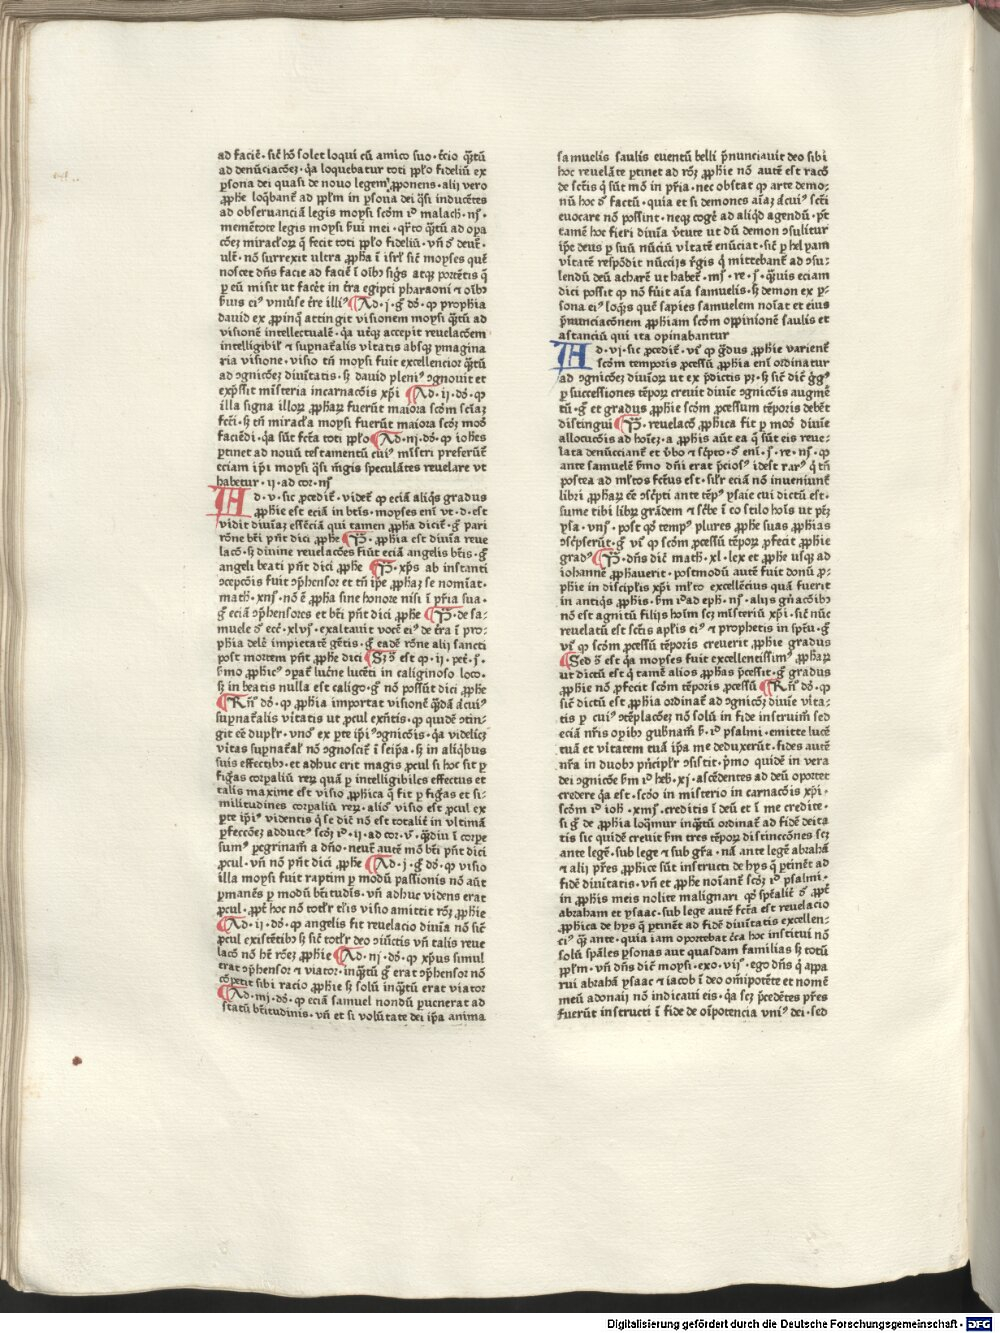 ad facie᷒· sic̄ hō solet loqui cū amico suo·tcio q̄ꝫtū
ad denūciacōeꝫ·qͣa loquebatur toti ppl̄o fideliū ex
ꝑsona dei quasi de nouo legem ꝓponens·alij vero
ꝓph̄e loqͣbant̄ ad ppl̄m in ꝑsona dei qͣsi inducētes
ad obseruanciā legis moysi scōm iᵈ malach·iiij·
mementote legis moysi ẜui mei·qͬto qͣꝫtū ad oꝑa
cōeꝫ miracl̄oꝝ q̄ fecit toti ppl̄o fideliū·vn̄ dᷓ deut·
ulē·nō surrexit ultra ꝓph̄a ī isrl̄ sic̄ moyses quē
noscet dn̄s facie ad faciē ī oīb⁹ sig̓s atqꝫ portētis q̄
ꝑ eū misit ut facet̄ in tr̄a egipti pharaoni ⁊ oīb⁹
ẜuis ei⁹ vnīuſe tr̄e illi⁹ Ad·j·g̊ dō·ꝙ prophīa
dauid ex ꝓpinq̊ attingit visionem moysi qͣꝫtū ad
visionē intellectualē·qͣa utēqꝫ accepit reuelacōem
intelligibil̓ ⁊ suꝑnat̄alis v̄itatis absqꝫ ymagina
ria visione·visio tn̄ moysi fuit excellencior qͣꝫtū
ad ↄgnicōeꝫ diuītatis·sꝫ dauid pleni⁹ ↄgnouit et
exp̄ssit misteria incarnacōis xp̄i Ad·ij·dō·ꝙ
illa signa illoꝝ ꝓph̄aꝝ fuerūt maiora scōm sb̄aꝫ
fcti·sꝫ tn̄ miracl̄a moysi fuerūt maiora scōꝫ modū
faciēdi·qͣa sūt fcta toti ppl̄o Ad·iij·dō·ꝙ ioh̄es
ꝑtinet ad nouū testamētū cui⁹ mīstri preferūt̄
eciam ip̄i moysi qͣsi mͣgis speculātes reuelare vt
habetur·ij·ad cor·iij
Ad·v·sic ꝓcedit̄·videt̄ ꝙ eciā aliq̊s gradus
ꝓph̄ie est eciā in bt̄is·moyses em̄ vt·dᷓ·est
vidit diuīaꝫ essēciā qui tamen ꝓph̄a dicit̄·g̊ pari
rōne bt̄i pn̄t dici ꝓph̄e P̄·ꝓph̄ia est diuīa reue
lacō·sꝫ diuine reuelacōes fiūt eciā angelis bt̄is·g̊
angeli beati pn̄t dici ꝓph̄e P̄·xp̄s ab instanti
ↄcepcōis fuit ↄp̄hensor et tn̄ ip̄e ꝓph̄aꝫ se nomīat·
math·xiij·nō ē ꝓph̄a sine honore nisi ī pr̄ia sua·
g̊ eciā ↄp̄hensores et bt̄i pn̄t dici ꝓph̄e P̄·de sa-
muele dᷓ ecc̄·xlvj·exaltauit vocē ei⁹ de tr̄a ī pro-
phīa delē impietatē gētis·g̊ eadē rōne alij sancti
post mortem pn̄t ꝓph̄e dici Sꝫ ꝯ̄ est ꝙ·ij·pet̄·j·
ẜmo ꝓph̄ic⁹ ↄꝑaͭ luc̄ne lucēti in caliginoso loco·
sꝫ in beatis nulla est caligo·g̊ nō pōssūt dici ꝓph̄e
Rn̄ dō·ꝙ ꝓph̄ia importat visionē quādā alicui⁹
suꝑnat̄alis v̄itatis ut ꝓcul exn̄tis·ꝙ quidē ↄtin-
git ēē duplr̄·vno᷒ ex ꝑte ip̄i⁹ ↄgnicōis·qͣa videlicꝫ
v̄itas suꝑnat̄al̓ nō ↄgnoscit̄ ī seip̄a·sꝫ in aliq̊bus
suis effectib⁹·et adhuc erit magis ꝓcul si hoc fit ꝑ
figͣas corꝑaliū reꝝ quā ꝑ intelligibiles effectus et
talis maxime est visio ꝓph̄ica q̄ fit ꝑ figͣas et si-
militudines corꝑaliū reꝝ·alio᷒ visio est ꝓcul ex
ꝑte ip̄i⁹ videntis q̄ se dic̄ nō est totalit̄ in vltimā
ꝑfeccōeꝫ adduct⁹ scōꝫ iᵈ·ij·ad cor·v·qͣꝫdiu ī corꝑe
sum⁹ ꝑegrinam̄ a dn̄o·neut̄ autē mō bt̄i pn̄t dici
ꝓcul·vn̄ nō pn̄t dici ꝓph̄e Ad·j·g̊ dō·ꝙ visio
illa moysi fuit raptim ꝑ modū passionis nō aūt
ꝑmanēs ꝑ modū bt̄itudīs·vn̄ adhuc videns erat
ꝓcul·ꝓpt̄ hoc nō totlr̄ tl̄is visio amittit rōꝫ ꝓph̄ie
Ad·ij·dō·ꝙ angelis fit reuelacio diuīa nō sic̄
ꝓcul existētib⁹ sꝫ sic̄ totlr̄ deo ↄiūctis vn̄ talis reue
lacō nō hꝫ rōeꝫ ꝓph̄ie Ad·iij·dō·ꝙ xp̄us simul
erat ↄp̄hensor ⁊ viator·inqͣꝫtū g̊ erat ↄp̄hensor nō
cōꝑetit sibi racio ꝓph̄ie sꝫ solū inqͣꝫtū erat viator
Ad·iiij·dō·ꝙ eciā samuel nondū ꝑuenerat ad
statū bt̄itudinis·vn̄ et si volūtate dei ip̄a anima
samuelis saulis euentū belli p̄nunciauit deo sibi
hoc reuelāte ꝑtinet ad rōꝫ ꝓph̄ie nō autē est racō
de sctīs q̄ sūt mō in pr̄ia·nec obstat ꝙ arte demo-
nū hoc dᷓ factū·quia et si demones aīaꝫ alicui⁹ scti
euocare nō possint·neqꝫ cogē ad aliq̊d agendū·pt̄
tamē hoc fieri diuīa v̓tute ut dū demon ↄsulitur
ip̄e deus ꝑ suū nūciū v̄itatē enūciat·sic̄ ꝑ helyam
v̄itatem respōdit nuncijs rͤgis q̄ mittebant̄ ad ↄsu-
lendū deū acharē ut habet̄·iiij·re·j·qͣuis eciam
dici possit ꝙ nō fuit aīa samuelis·sꝫ demon ex ꝑ-
sona ei⁹ loq̄ns quē sapies samuelem noīat et eius
p̄nunciacōnem ꝓph̄iam scōm oppinionē saulis et
astanciū qui ita opinabantur
Ad·vj·sic ꝓcedit̄·vͥ ꝙ gͣdus ꝓph̄ie varient̄
scōm temporis ꝓcessū ꝓph̄ia em̄ ordinatur
ad ↄgnicōeꝫ diuīoꝝ ut ex p̄dictis pꝫ·sꝫ sic̄ dic̄ gͤg⁹
ꝑ successiones tēpoꝝ creuit diuīe ↄgnicōis augmē
tū·g̊ et gradus ꝓph̄ie scōm ꝓcessum tēporis debēt
distingui P̄·reuelacō ꝓph̄ica fit ꝑ modū diuīe
allocucōis ad hoīeꝫ·a ꝓph̄is aūt ea q̄ sūt eis reue-
lata denūciant̄ et v̓bo ⁊ sc̄pto·dᷓ em̄·j·re·iij·ꝙ
ante samuelē ẜmo dn̄i erat p̄cios⁹ idest rar⁹ q̄ tn̄
postea ad ml̄tos fctus est·silr̄ eciā nō inueniunt̄
libri ꝓph̄aꝝ ēē ↄsc̄pti ante tēp⁹ ysaie cui dictū est·
sume tibi libꝝ grādem ⁊ sc̄be ī eo stilo hoīs ut pꝫ
ysa·viij·post qd̄ temp⁹ plures ꝓph̄e suas ꝓph̄ias
ↄsc̄pserūt·g̊ vͥ ꝙ scōm ꝓcessū tēpoꝝ ꝓfecit ꝓph̄ie
grad⁹ P̄·dn̄s dic̄ math·xi·lex et ꝓph̄e usqꝫ ad
iohannē ꝓph̄auerūt·postmodū autē fuit donū ꝓ-
ph̄ie in discipl̄is xp̄i ml̄to excellēcius quā fuerit
in antiq̊s ꝓph̄is·ẜm iᵈ ad eph·iij·alijs gn̄acōib⁹
nō est agnitū filijs hoīm scꝫ mīsteriū xp̄i·sic̄ nūc
reuelatū est sctīs apl̄is ei⁹ ⁊ prophetis in sp̄ū·g̊
vͥ ꝙ scōm ꝓcessū tēporis creuerit ꝓph̄ie gradus
Sed ꝯ̄ est qͣa moyses fuit excellentissim⁹ ꝓph̄aꝝ
ut dictū est q̄ tamē alios ꝓph̄as p̄cessit·g̊ gradus
ꝓph̄ie nō ꝓfecit scōm tēporis ꝓcessū Rn̄ dō·ꝙ
sic̄ dictū est ꝓph̄ia ordinat̄ ad ↄgnicōeꝫ diuīe v̄ita-
tis ꝑ cui⁹ ↄtēplacōeꝫ nō solū in fide instruim̄ sed
eciā nr̄is oꝑib⁹ gub̄nam̄ ẜ·iᵈ psalmi·emitte lucē
tuā et v̄itatem tuā ip̄a me deduxerūt·fides autē
nr̄a in duob⁹ p̄ncipl̄r ↄsistit·p̄mo quidē in vera
dei ↄgnicōe ẜm iᵈ heb̄·xj·ascēdentes ad deū oportet
credere qͣa est·scd̄o in misterio incarnacōis xp̄i·
scōm iᵈ ioh·xiiij·creditis ī deū et ī me credite·
si g̊ de ꝓph̄ia loq̄mur inqͣꝫtū ordinat̄ ad fidē deita
tis sic quidē creuit ẜm tres tēpoꝝ distinccōnes scꝫ
ante legē·sub lege ⁊ sub gr̄a·nā ante legē abrahā
⁊ alij pr̄es ꝓph̄ice sūt instructi de hys q̄ ꝑtinēt ad
fidē diuītatis·vn̄ et ꝓph̄e noīant̄ scōꝫ iᵈ psalmi·
in ꝓph̄is meis nolite malignari qd̄ sp̄alit̄ dᷓ ꝓpt̄
abraham et ysaac·sub lege autē fcta est reuelacio
ꝓph̄ica de hys q̄ ꝑtinēt ad fidē diuītatis excellen-
ci⁹ qͣꝫ ante·quia iam oportebat c̓ca hoc institui nō
solū sp̄ales ꝑsonas aut quasdam familias sꝫ totū
ppl̄m·vn̄ dn̄s dic̄ moysi·exo·vij·ego dn̄s q̄ appa
rui abrahā ysaac ⁊ iacob ī deo om̄ipotēte et nomē
meū adonaii nō indicaui eis·qͣa scꝫ p̄cedētes pr̄es
fuerūt instructi ī fide de oīpotencia vni⁹ dei·sed
Digitalisierung gefördert durch die Deutsche Forschungsgemeinschaft - DFG